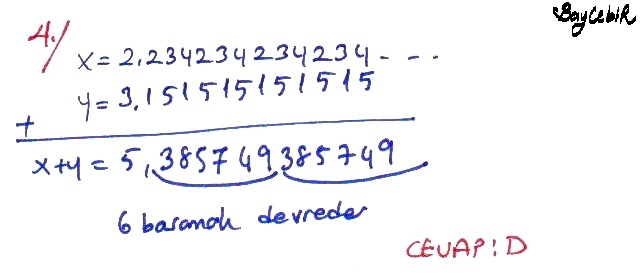 BayCebiR
4./
x = 2,234234234234 - - .
y = 3,151515151515
+
x+y = 5,385749385749
6 basamak devreder
CEVAP: D